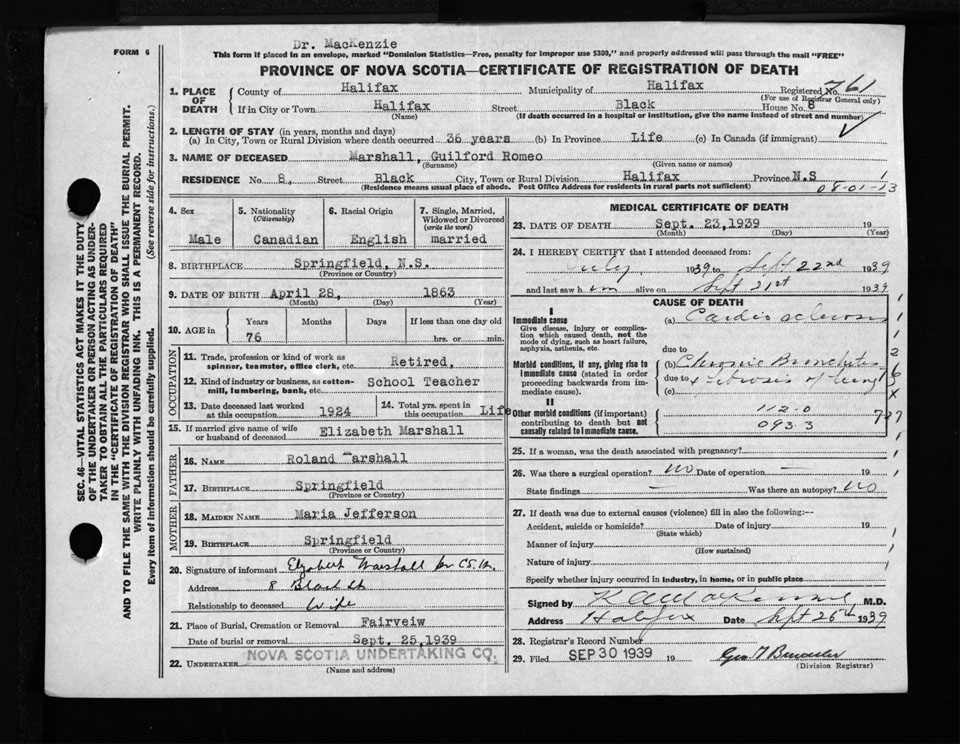 FORM 6
Dr. MacKenzie
This form if placed in an envelope, marked "Dominion Statistics—Free, penalty for improper use $300," and properly addressed will pass through the mail "FREE"
PROVINCE OF NOVA SCOTIA—CERTIFICATE OF REGISTRATION OF DEATH
1. PLACE OF DEATH { County of Halifax Municipality of Halifax Registered No. 761
(For use of Registrar General only)
If in City or Town Halifax Street Black House No. 8
(Name) (If death occurred in a hospital or institution, give the name instead of street and number)
2. LENGTH OF STAY (in years, months and days)
(a) In City, Town or Rural Division where death occurred 36 years (b) In Province Life (c) In Canada (if immigrant)
3. NAME OF DECEASED Marshall, Guilford Romeo
(Surname) (Given name or names)
RESIDENCE No. 8, Street Black City, Town or Rural Division Halifax Province N.S
(Residence means usual place of abode. Post Office Address for residents in rural parts not sufficient)
08-01-13
4. Sex Male
5. Nationality (Citizenship) Canadian
6. Racial Origin English
7. Single, Married, Widowed or Divorced (write the word) married
8. BIRTHPLACE Springfield, N.S.
(Province or Country)
9. DATE OF BIRTH April 28, 1863
(Month) (Day) (Year)
10. AGE in Years Months Days If less than one day old
76 hrs. or min.
OCCUPATION
11. Trade, profession or kind of work as spinner, teamster, office clerk, etc. Retired,
12. Kind of industry or business, as cotton-mill, lumbering, bank, etc. School Teacher
13. Date deceased last worked at this occupation 1924
14. Total yrs. spent in this occupation Life
15. If married give name of wife or husband of deceased Elizabeth Marshall
FATHER
16. NAME Roland Marshall
17. BIRTHPLACE Springfield
(Province or Country)
MOTHER
18. MAIDEN NAME Maria Jefferson
19. BIRTHPLACE Springfield
(Province or Country)
20. Signature of informant Elizabeth Marshall
Address 8 Black St
Relationship to deceased Wife
21. Place of Burial, Cremation or Removal Fairveiw
Date of burial or removal Sept. 25, 1939
22. UNDERTAKER NOVA SCOTIA UNDERTAKING CO.
(Name and address)
MEDICAL CERTIFICATE OF DEATH
23. DATE OF DEATH Sept. 23, 1939 19
(Month) (Day) (Year)
24. I HEREBY CERTIFY that I attended deceased from:
July 1939 to Sept 22nd 1939
and last saw him alive on Sept 21st 1939
CAUSE OF DEATH
I
Immediate cause
Give disease, injury or complication which caused death, not the mode of dying, such as heart failure, asphyxia, asthenia, etc.
(a) Cardio sclerosis
due to
Morbid conditions, if any, giving rise to immediate cause (stated in order proceeding backwards from immediate cause).
(b) Chronic Bronchitis
due to & fibrosis of lung
(c)
II
Other morbid conditions (if important) contributing to death but not causally related to immediate cause.
112-0
093.3
727
25. If a woman, was the death associated with pregnancy?
26. Was there a surgical operation? no Date of operation — 19
State findings — Was there an autopsy? no
27. If death was due to external causes (violence) fill in also the following:—
Accident, suicide or homicide? Date of injury 19
(State which)
Manner of injury
(How sustained)
Nature of injury
Specify whether injury occurred in industry, in home, or in public place
Signed by K A MacKenzie M.D.
Address Halifax Date Sept 25th 1939
28. Registrar's Record Number
29. Filed SEP 30 1939 19
(Division Registrar)
SEC. 46—VITAL STATISTICS ACT MAKES IT THE DUTY
OF THE UNDERTAKER OR PERSON ACTING AS UNDER-
TAKER TO OBTAIN ALL THE PARTICULARS REQUIRED
IN THE "CERTIFICATE OF REGISTRATION OF DEATH"
AND TO FILE THE SAME WITH THE DIVISION REGISTRAR WHO SHALL ISSUE THE BURIAL PERMIT.
WRITE PLAINLY WITH UNFADING INK. THIS IS A PERMANENT RECORD.
Every item of information should be carefully supplied. (See reverse side for instructions.)